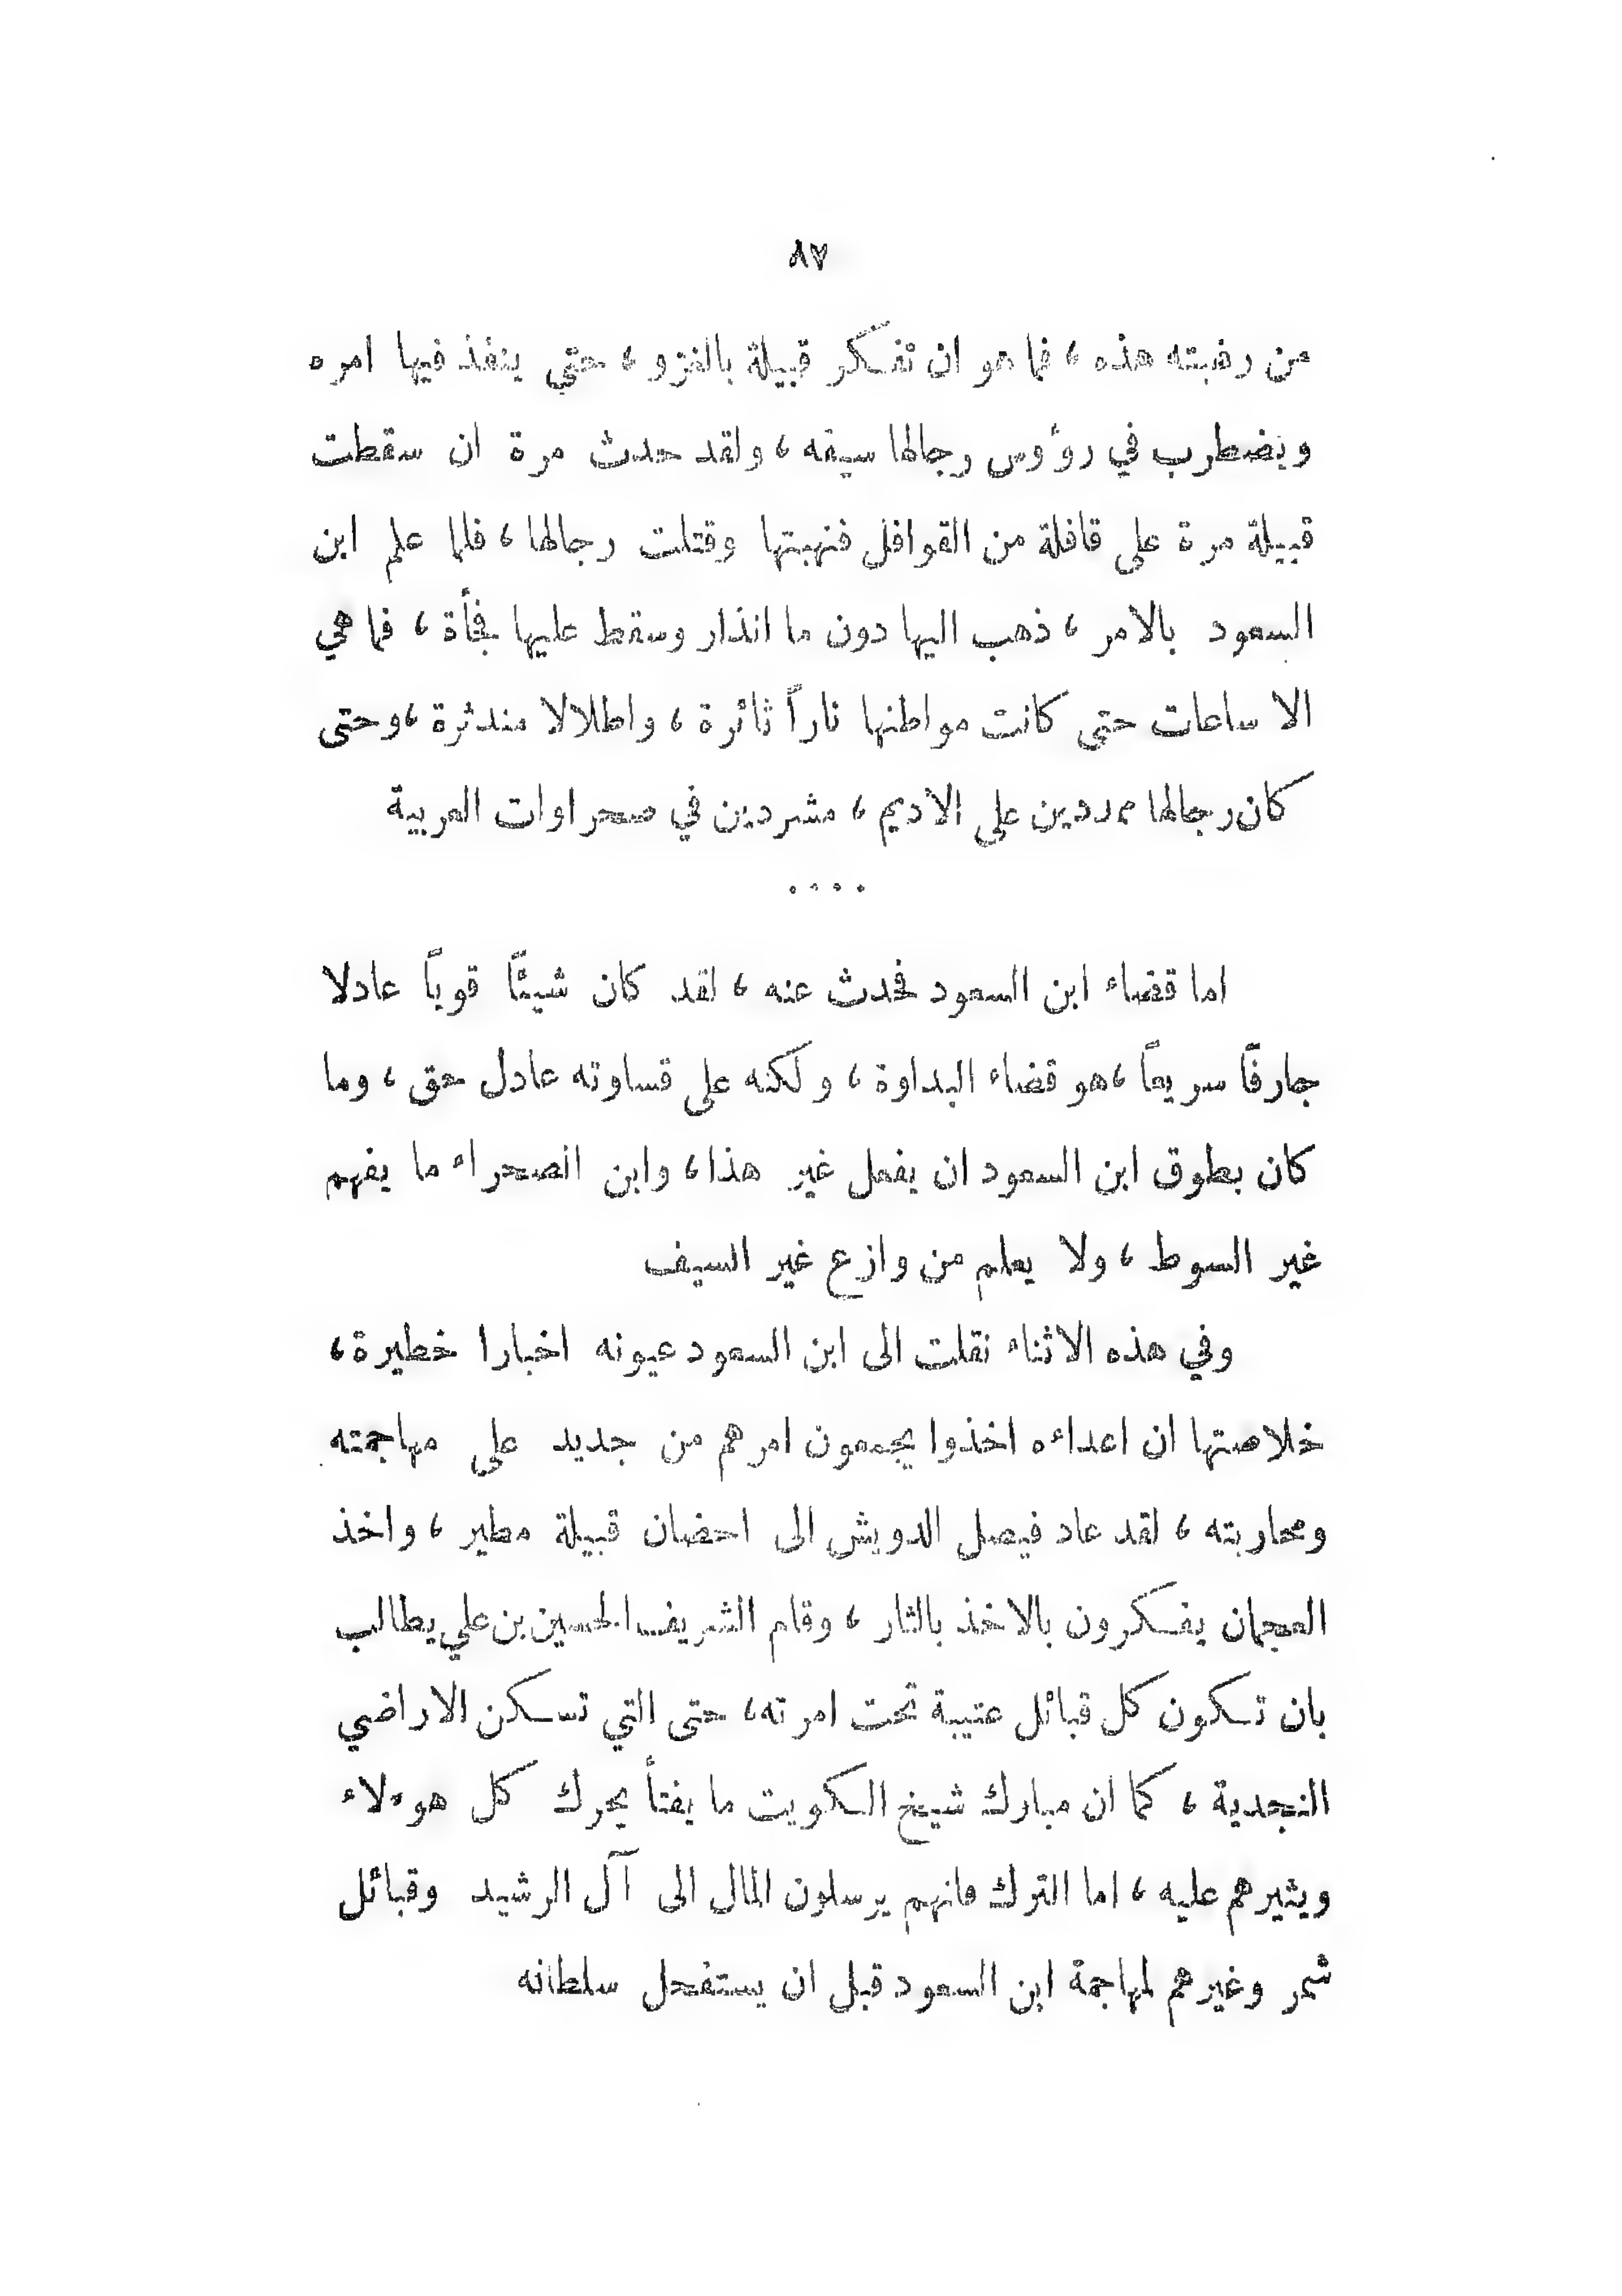 ٨٧
من رغبته هذه ، فما هو ان تفكر قبيلة بالغزو ، حتى ينفذ فيها امره
ويضطرب في رؤوس رجالها سيفه ، ولقد حدث مرة ان سقطت
قبيلة مرة على قافلة من القوافل فنهبتها وقتلت رجالها ، فلما علم ابن
السعود بالامر ، ذهب اليها دون ما انذار وسقط عليها فجأة ، فما هي
الا ساعات حتى كانت مواطنها ناراً ثائرة ، واطلالا مندثرة ، وحتى
كان رجالها ممددين على الاديم ، مشردين في صحراوات العربية
٠٠٠٠
اما قضاء ابن السعود فحدث عنه ، لقد كان شيئاً قوياً عادلا
جارفاً سريعاً ، هو قضاء البداوة ، ولكنه على قساوته عادل حق ، وما
كان بطوق ابن السعود ان يفعل غير هذا ، وابن الصحراء ما يفهم
غير السوط ، ولا يعلم من وازع غير السيف
وفي هذه الاثناء نقلت الى ابن السعود عيونه اخبارا خطيرة ،
خلاصتها ان اعداءه اخذوا يجمعون امرهم من جديد على مهاجمته
ومحاربته ، لقد عاد فيصل الدويش الى احضان قبيلة مطير ، واخذ
العجمان يفكرون بالاخذ بالثار ، وقام الشريف الحسين بن علي يطالب
بان تكون كل قبائل عتيبة تحت امرته ، حتى التي تسكن الاراضي
النجدية ، كما ان مبارك شيخ الكويت ما يفتأ يحرك كل هوءلاء
ويثيرهم عليه ، اما الترك فانهم يرسلون المال الى آل الرشيد وقبائل
شمر وغيرهم لمهاجمة ابن السعود قبل ان يستفحل سلطانه